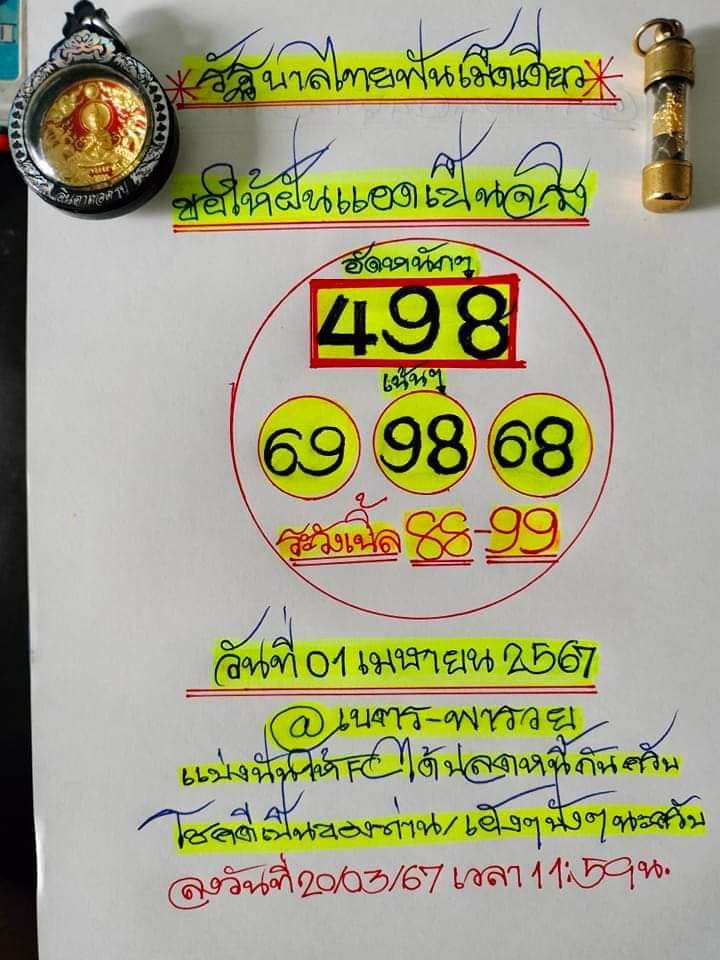 *รัฐบาลไทยฟันเม็ดเดียว*
ขอให้ฝันแอดเป็นจริง
อัดหนักๆ
498
เน้นๆ
69 98 68
ระวังเบิ้ล 88-99
วันที่ 01 เมษายน 2567
@เนตร-พารวย
แบ่งปันให้ FC ได้ปลดหนี้กันครับ
โชคดีเป็นของท่าน/เฮงๆปังๆนะครับ
ลงวันที่ 20/03/67 เวลา 11:59 น.